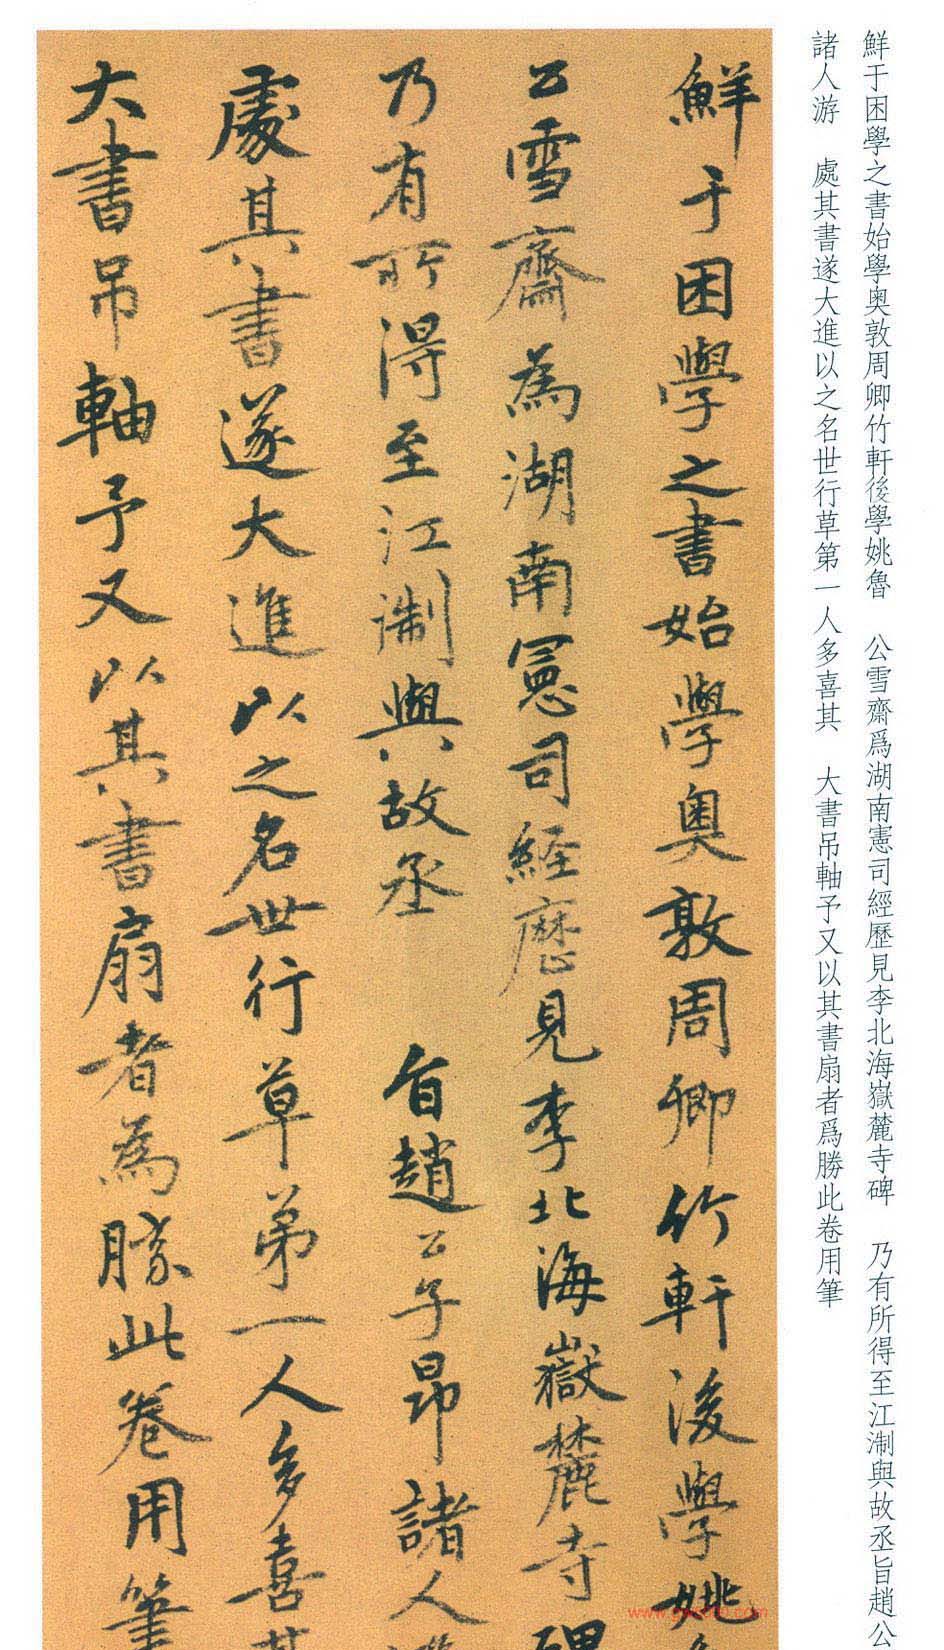 鮮于困學之書始學奧敦周卿竹軒後學姚魯　公雪齋爲湖南憲司經歷見李北海嶽麓寺碑　乃有所得至江淛與故丞旨趙公
諸人游　處其書遂大進以之名世行草第一人多喜其　大書吊軸予又以其書扇者爲勝此卷用筆
鮮于困學之書始學奧敦周卿竹軒後學姚
公雪齋為湖南憲司經歷見李北海嶽麓寺碑
乃有所得至江淛與故丞　旨趙公子昂諸人游
處其書遂大進以之名世行草弟一人多喜其
大書吊軸予又以其書扇者為勝此卷用筆